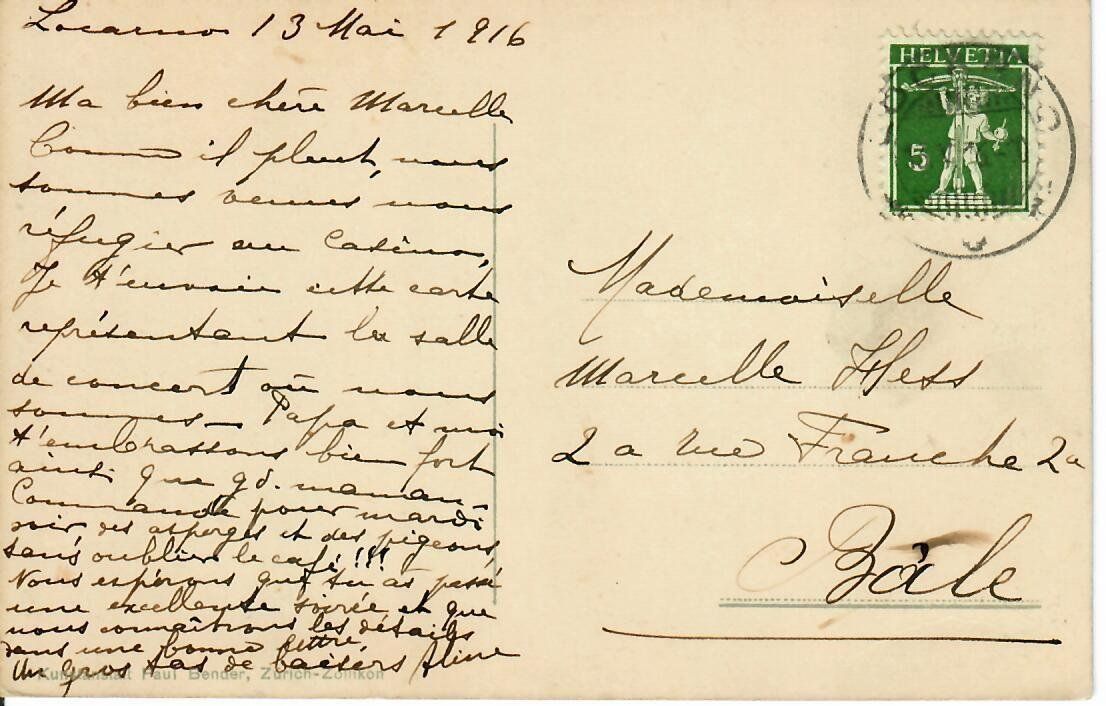 Locarno 13 Mai 1916
Ma bien chère Marcelle
Comme il pleut, nous
sommes venus nous
réfugier au Casino,
Je t'envoie cette carte
représentant la salle
de concert où nous
sommes. Papa et moi
t'embrassons bien fort
ainsi que gd. maman.
Commande pour mardi
soir des asperges et des pigeons
sans oublier le café!!!
Nous espérons que tu as passé
une excellente soirée et que
nous connaîtrons les détails
dans une bonne lettre
Un gros tas de baisers
Kunstanstalt Paul Bender, Zürich-Zollikon
HELVETIA
5
Mademoiselle
Marcelle Hess
2a rue Franche 2a
Bâle